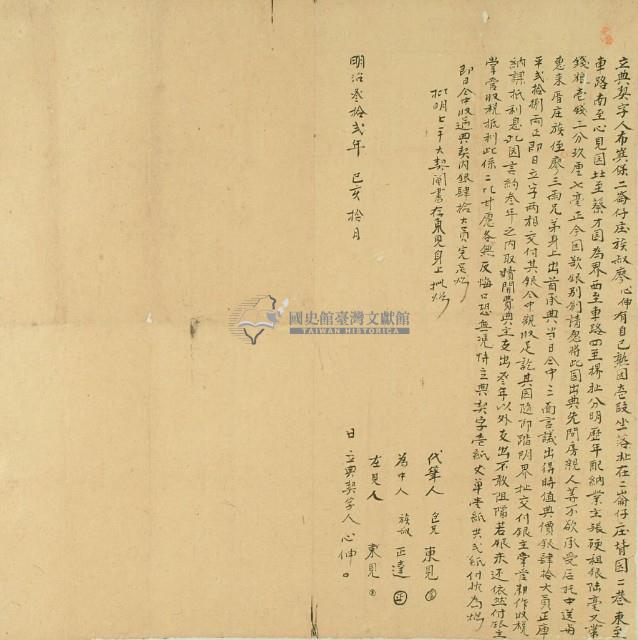 立典契字人布嶼保二崙仔庄族叔廖心伸有自己熟園壹段坐落址在二崙仔庄背園二巷東至
車路南至心見園北至蔡才園為界西至車路四至界址分明歷年配納業主張硬租銀陸毫又業
錢糧壹錢二分玖厘七毫正今因欠銀別創情愿將此園出典先問房親人等不欲承受后托中送與
惠來厝庄族侄廖三兩兄弟身上出首承典當日仝中三面言議出得時值典價銀肆拾大員正庫
平貳拾捌兩正即日立字兩相交付其銀仝中親收足訖其園隨即踏明界址交付銀主掌管耕作收稅
納課抵利息此園言約叁年之內取贖開費典主支出叁年以外支出不敢阻隔若銀未還依然付銀主
掌管收稅抵利此係二比甘愿各無反悔口恐無憑仝立典契字壹紙丈單壹紙共貳紙付执為炤
即日仝中收過典契內銀肆拾大員完足炤
批明七年大契鬮書存東見身上批炤
代筆人 包兄 東見
為中人 族叔 正達
在見人 東見
日立典契字人 心伸
明治叁拾貳年 己亥 拾月
國史館臺灣文獻館
TAIWAN HISTORICA